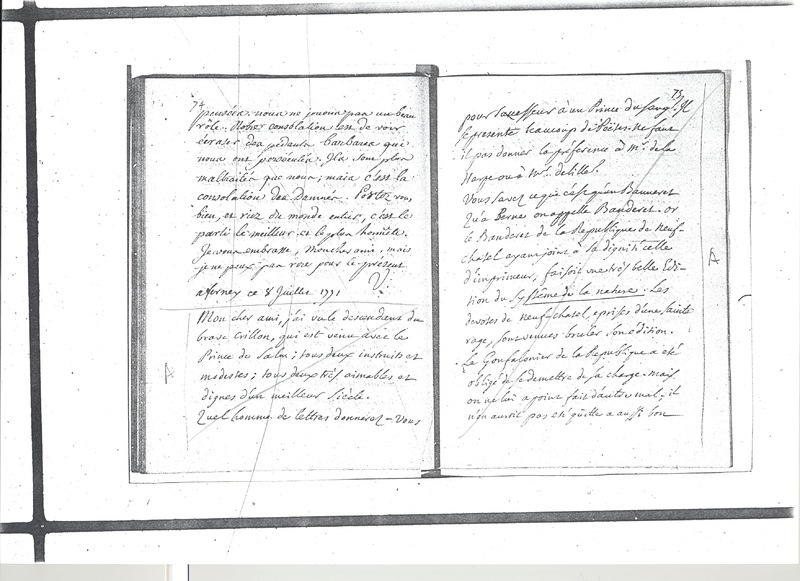 74
pensées. nous ne jouons pas un beau
rôle. Notre consolation est de voir
écraser des pédants barbares qui
nous ont persécutés. Ils sont plus
maltraités que nous; mais c'est la
consolation des Damnés. Portez vous
bien, et riez du monde entier, c'est le
parti le meilleur et le plus honnête.
Je vous embrasse, mon cher ami, mais
je ne peux pas rire pour le présent
V:
a ferney ce 8 Juillet 1771
Mon cher ami, j'ai vu le descendant du
brave Crillon, qui est venu avec le
Prince de Salm; tous deux instruits et
modestes; tous deux très aimables et
dignes d'un meilleur siècle.
Quel homme de lettres donnerez-vous
75
pour successeur à un Prince du sang. Il
se presente beaucoup de Poëtes. ne faut
il pas donner la préference à Mr. de la
Harpe ou à Mr. de lille?
Vous savez ce que c'est qu'un Banneret
qu'à Berne on appelle Banderet. or
le Banderet de la Republique de Neuf-
chatel ayant joint à sa dignité celle
d'imprimeur, faisoit une très belle Edi-
tion du Systême de la nature. Les
devotes de Neuf-chatel, eprises d'une sainte
rage, sont venues bruler son édition.
Le Gonfalonier de la Republique a été
obligé de se demettre de sa charge. mais
on ne lui a point fait d'autre mal; il
n'en auroit pas été quitte a aussi bon